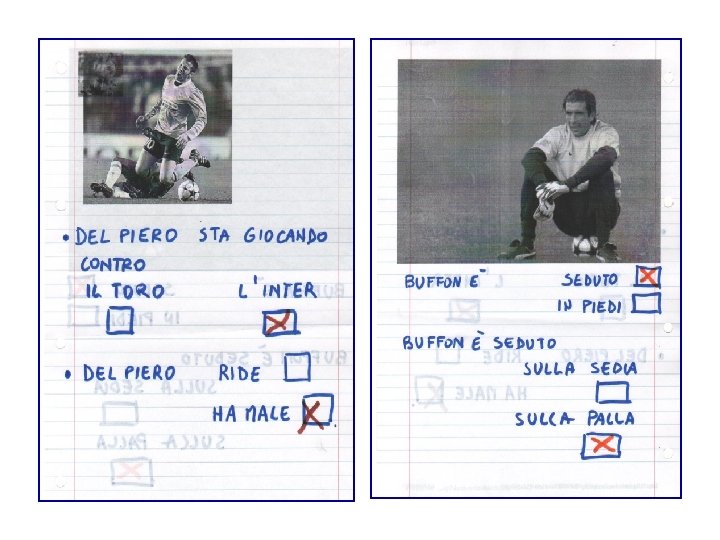 • DEL PIERO STA GIOCANDO
CONTRO
IL TORO L'INTER
• DEL PIERO RIDE
HA MALE
BUFFON È SEDUTO
IN PIEDI
BUFFON È SEDUTO
SULLA SEDIA
SULLA PALLA